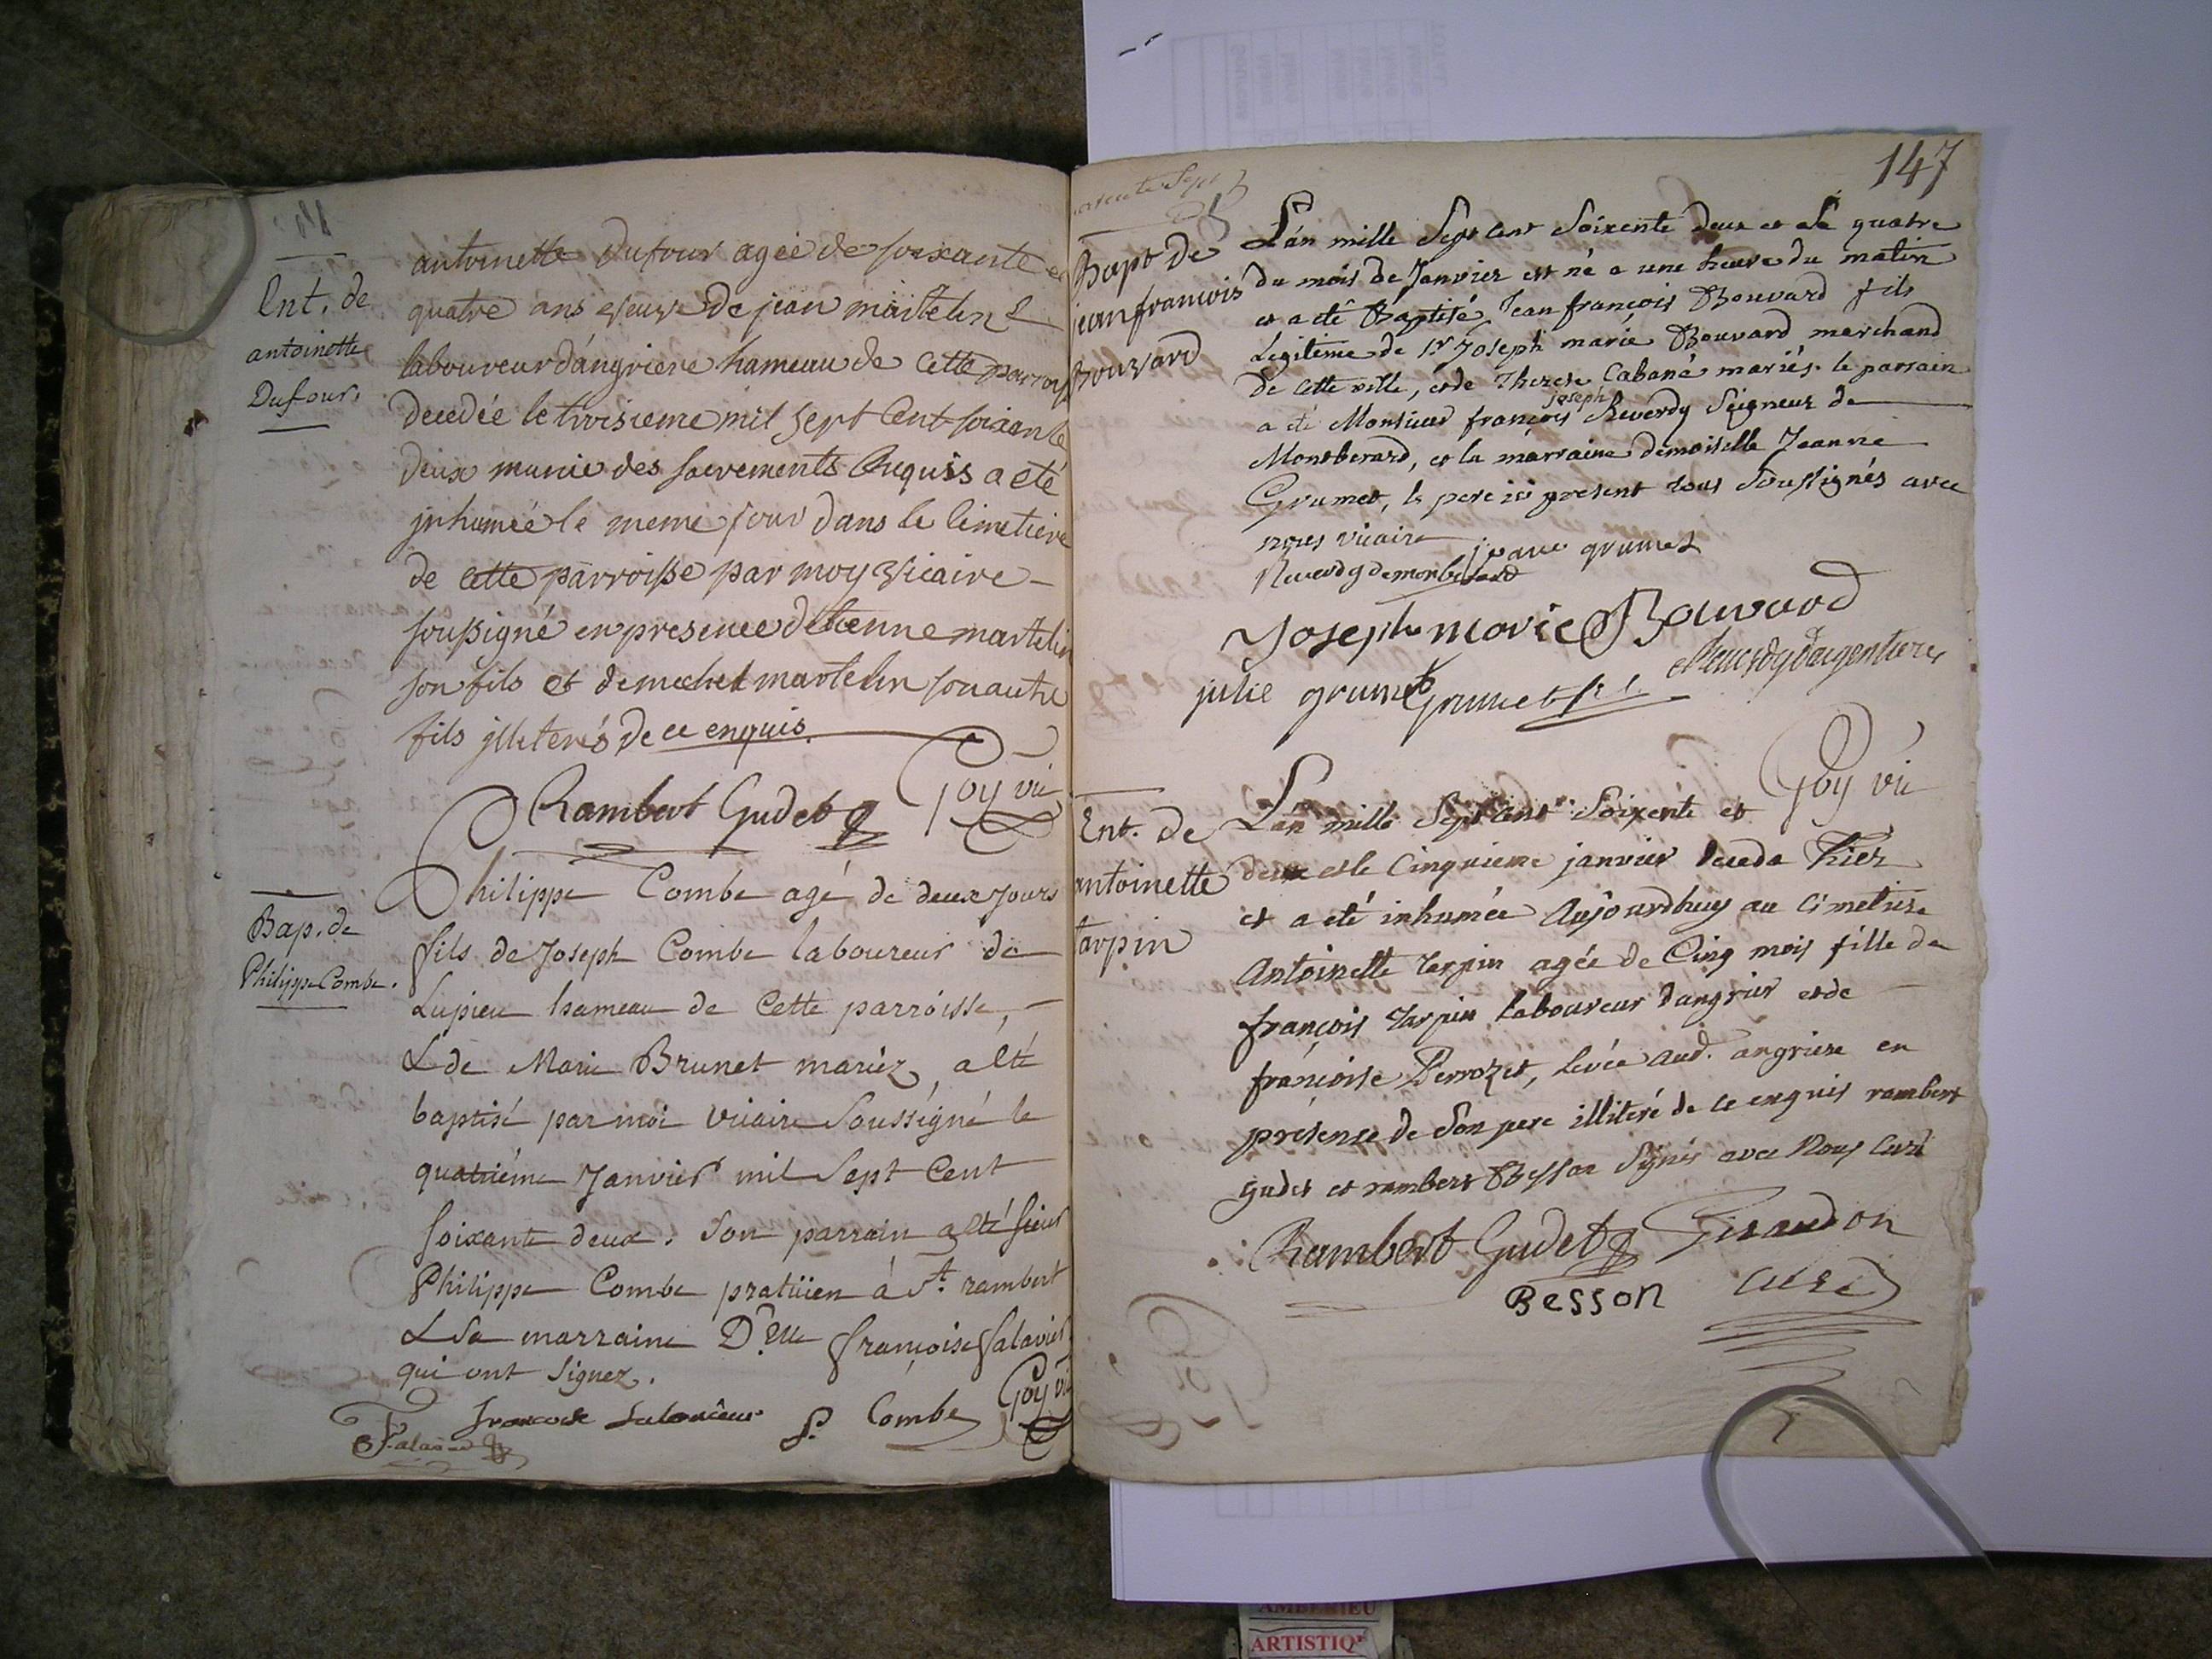 Ent. de
antoinette
Dufour.
antoinette Dufour agée de soixante et
quatre ans veuve de jean martelin
laboureur d'angriere hameau de cette parrois
decedée le troisieme mil sept Cent soixante
deux munie des sacrements Requis a eté
jnhumée le meme jour dans le Cimetiere
de cette parroisse par moy vicaire
soussigné en presence d'etienne martelin
son fils et de michel martelin son autre
fils jlleterés de ce enquis.
Rambert Gudet Goy vic
Bap. de
Philippe Combe.
Philippe Combe agé de deux jours
fils de Joseph Combe laboureur de
Lupieu hameau de Cette parroisse,
& de Marie Brunet mariéz, a eté
baptisé par moi vicaire Soussigné le
quatriéme Janvier mil Sept Cent
soixante deux. Son parrain a eté sieur
Philippe Combe praticien à St. rambert
& Sa marraine D.elle françoise Salavier
qui ont Signez.
P. Combe Goy vic
147
Bapt de
jean francois
Bouvard
L'an mille Sept cent Soixente deux et Le quatre
du mois de Janvier est né a une heure du matin
et a eté Baptisé Jean françois Bouvard fils
Legiteme de Sr Joseph marie Bouvard marchand
de cette ville, et de Therese Cabané mariés. le parrain
joseph
a eté Monsieur françois Reverdy Seigneur de
Montberard, et la marraine demoiselle Jeanne
Grumet, le pere ici present tous Soussignés avec
nous vicaire
jeanne grumet
Reverdy de monberard
Joseph marie Bouvard
julie grumet Grumet Reverdy dargentiere
Goy vic
Ent. de
antoinette
tarpin
L'an mille Sept cent Soixente et
deux et le Cinquieme janvier decedé hier
et a eté inhumée Aujourdhuy au Cimetiere
Antoinette tarpin agée de Cinq mois fille de
françois tarpin Laboureur dangrier et de
françoise Perrozet, levée aud. angriere en
présense de Son pere illiteré de ce enquis rambert
gudet et rambert Besson Signés avec Nous Curé
Rambert Gudet Giraudon
Besson curé
ARTISTIQ